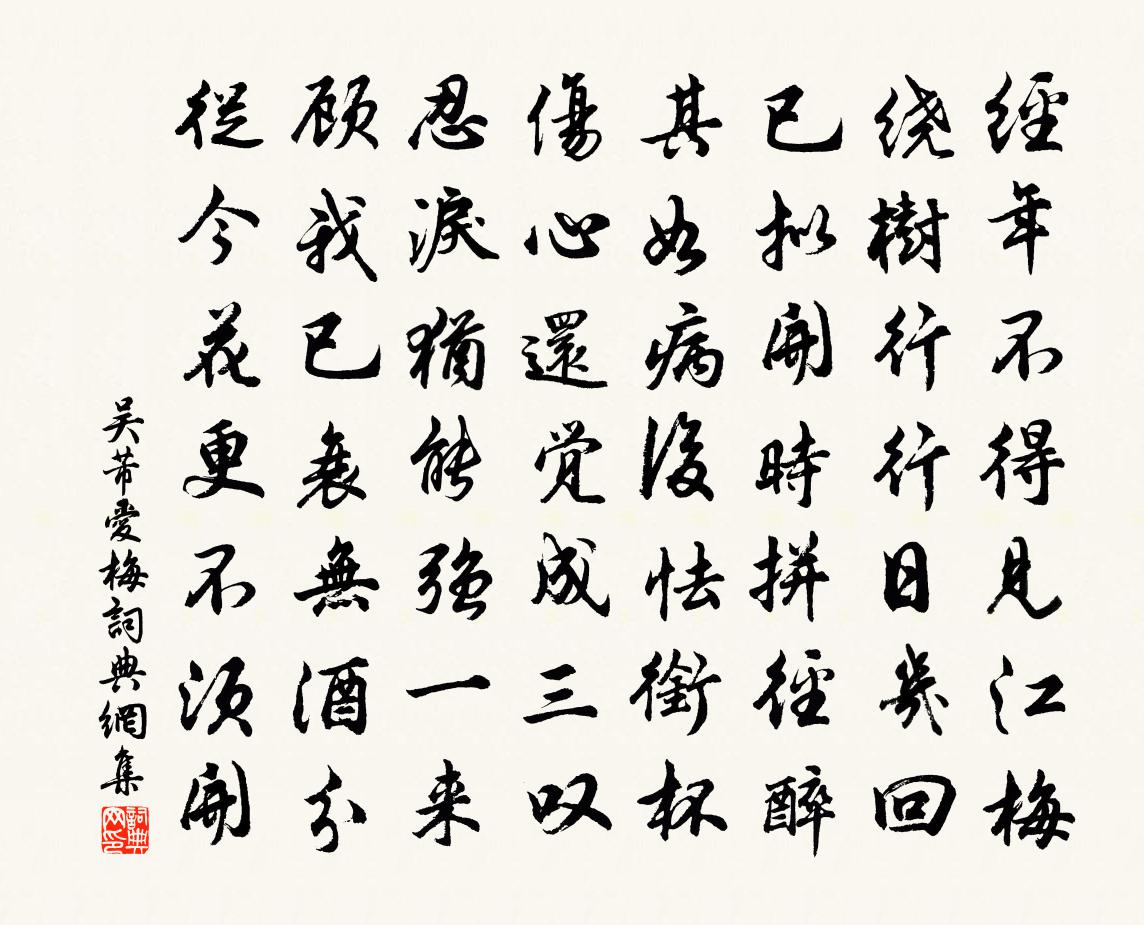 經年不得見江梅
绕樹行行日幾回
已拟開時拼徑醉
其如病後怯銜杯
傷心還觉成三叹
忍淚猶能强一来
顾我已衰無酒分
從今花更不須開
吴芾愛梅詞典網集
詞典网印